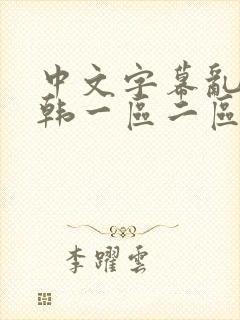 中文字幕亂
韩一區二區
李躍雲